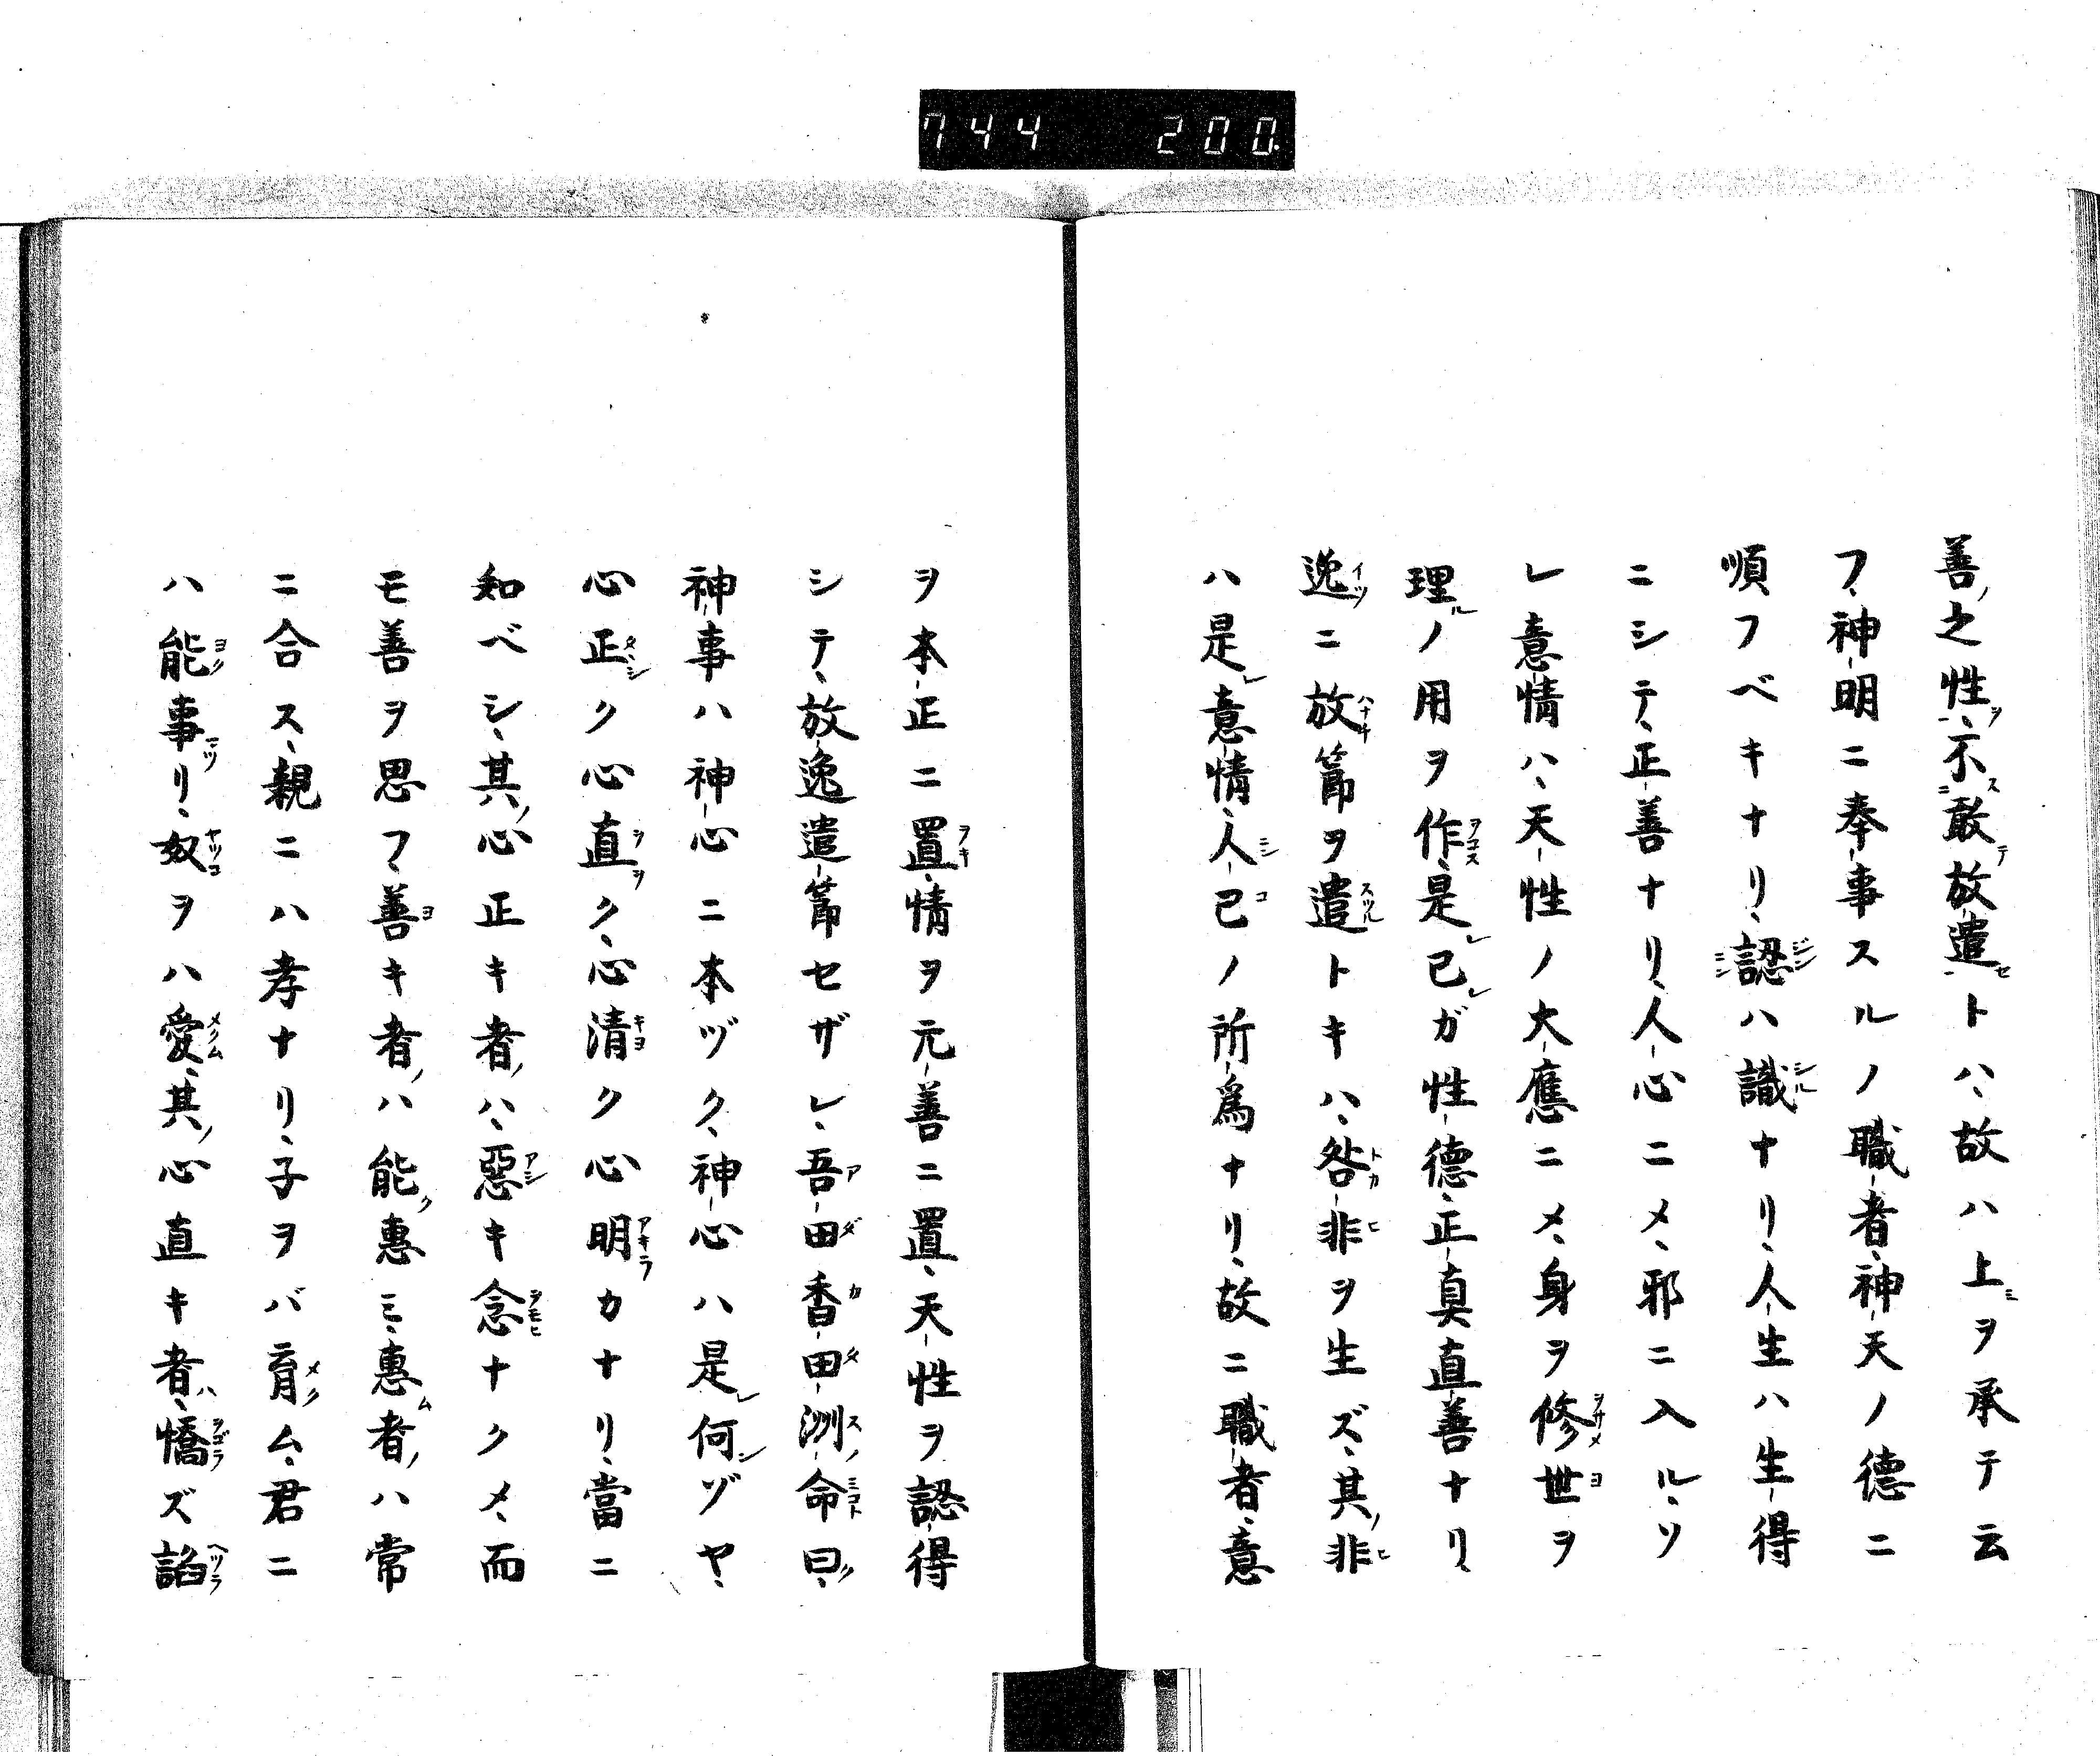 744 200.
善ノ之性ヲ、不敢放遣セトハ、故ハ上ヲ承テ云
フ、神明ニ奉事スルノ職者、神天ノ德ニ
順フベキナリ、認ハ識ナリ、人生ハ生得
ニシテ、正善ナリ、人心ニメ、邪ニ入ル、ソ
レ意情ハ、天性ノ大應ニメ、身ヲ修世ヲ
理ルノ用ヲ作、是レ己レガ性德、正真直善ナリ、
逸ニ放篩ヲ遣トキハ、咎非ヲ生ズ、其ノ非
ハ是レ意情、人己ノ所為ナリ、故ニ職者、意
ヲ本正ニ置、情ヲ元善ニ置、天性ヲ認得
シテ、放逸遣篩セザレ、吾田香田洲命曰ク、
神事ハ神心ニ本ヅク、神心ハ是レ何ゾヤ、
心正ク心直ク、心清ク心明カナリ、當ニ
知ベシ、其ノ心正キ者ノハ、惡キ念ナクメ、而
モ善ヲ思フ、善キ者ノハ能ク惠ミ、惠ム者ノハ常
ニ合ス、親ニハ孝ナリ、子ヲバ育ム、君ニ
ハ能事リ、奴ヲハ愛、其ノ心直キ者ハ、憍ズ諂